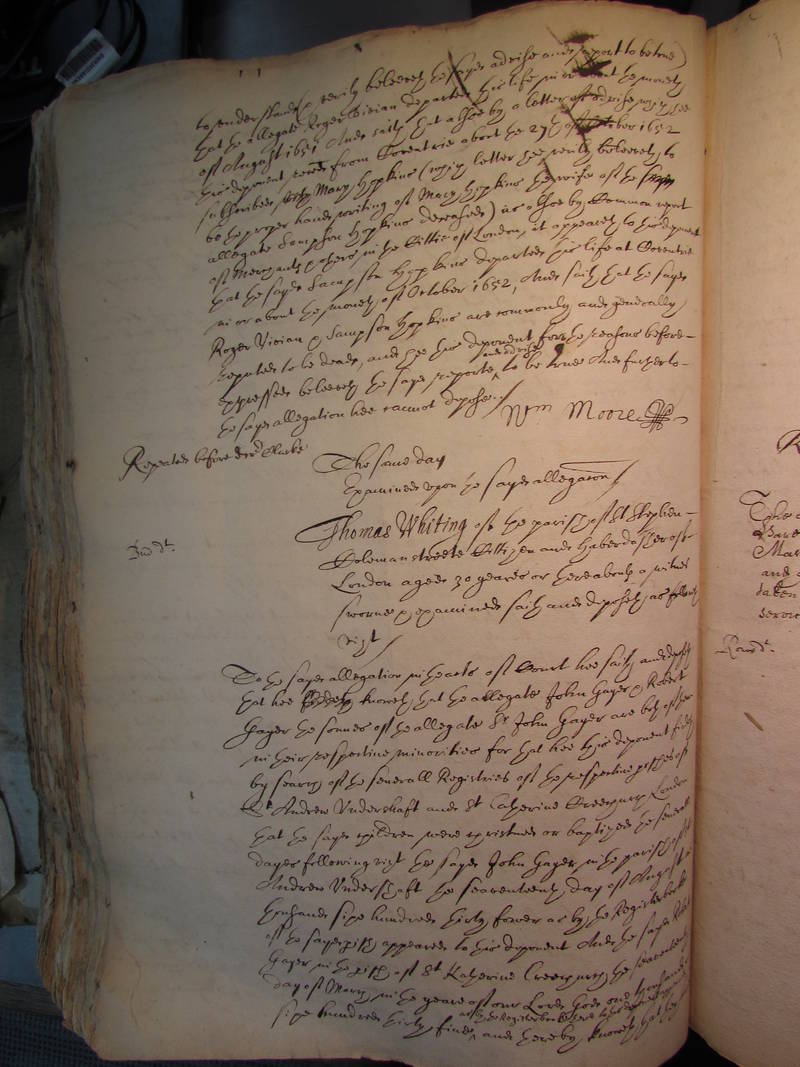 to understand & verily beleeveth the sayd advise and report to be true)
that the allegate Roger Vivian departed this life in or about the moneth
of August 1651 And saith that alsoe by a letter of advise wch hee
this deponent recd from Coventrie about the 27th of October 1652
subscribed Mary Hopkins (wch letter hee verily beleeveth to
be the proper hand writing of Mary Hopkins the wife of the
allegate Sampson Hopkins deceased) as alsoe by Common report
of Merchants & others in the Cittie of London, it appeareth to this deponent
that the sayd Sampson Hopkins departed this life at Coventrie
in or about the moneth of October 1652, And saith that the sayd
Roger Vivian & Sampson Hopkins are commonly and generally
reputed to be dead, and hee this deponent for the reasons before-
expressed beleeveth the sayd reporte and advise to be true And further to
the sayd allegation hee cannot depose./
Wm Moore
Repeated before Clarke
The same day
Examined upon the sayd allegacon/
2nd
Thomas Whiting of the parish of St Stephen-
Coleman streete Cittizen and Haberdasher of
London aged 30 yeares or thereabouts a witnes
sworne & examined saith and deposeth as followeth
vizt/
To the sayd allegation in the acts of Court hee saith and
that hee knoweth that the allegate John Gayer & Robert
Gayer the sonnes of the allegate Sr John Gayer are both of them
in their respective minorities for that hee this deponent
by search of the severall Registries of the respective pishes of
St Andrew Undershaft and St Catherine Creechurch London
that the sayd children were christned or baptized the severall
dayes following vizt the sayd John Gayer in the parish of St
Andrew Undershaft the seaventeenth day of August
thousand sixe hundred thirty fower as by the Register booke
of the sayd pish appeares to this deponent And the sayd Robert
Gayer in the pish of St Katherine Creechurch the
day of March in the yeare of our Lord God one thousand
sixe hundred thirty as by the Register booke there and thereby knoweth that they